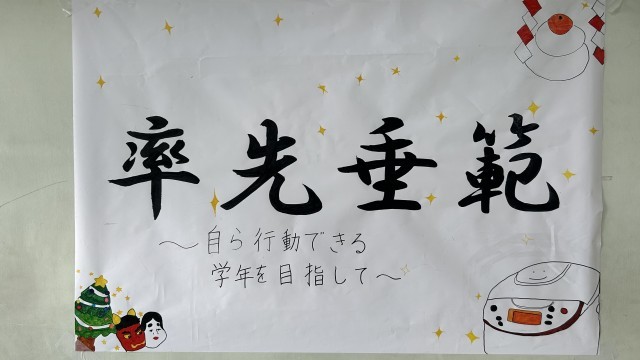 率先垂範
～自ら行動できる
学年を目指して～